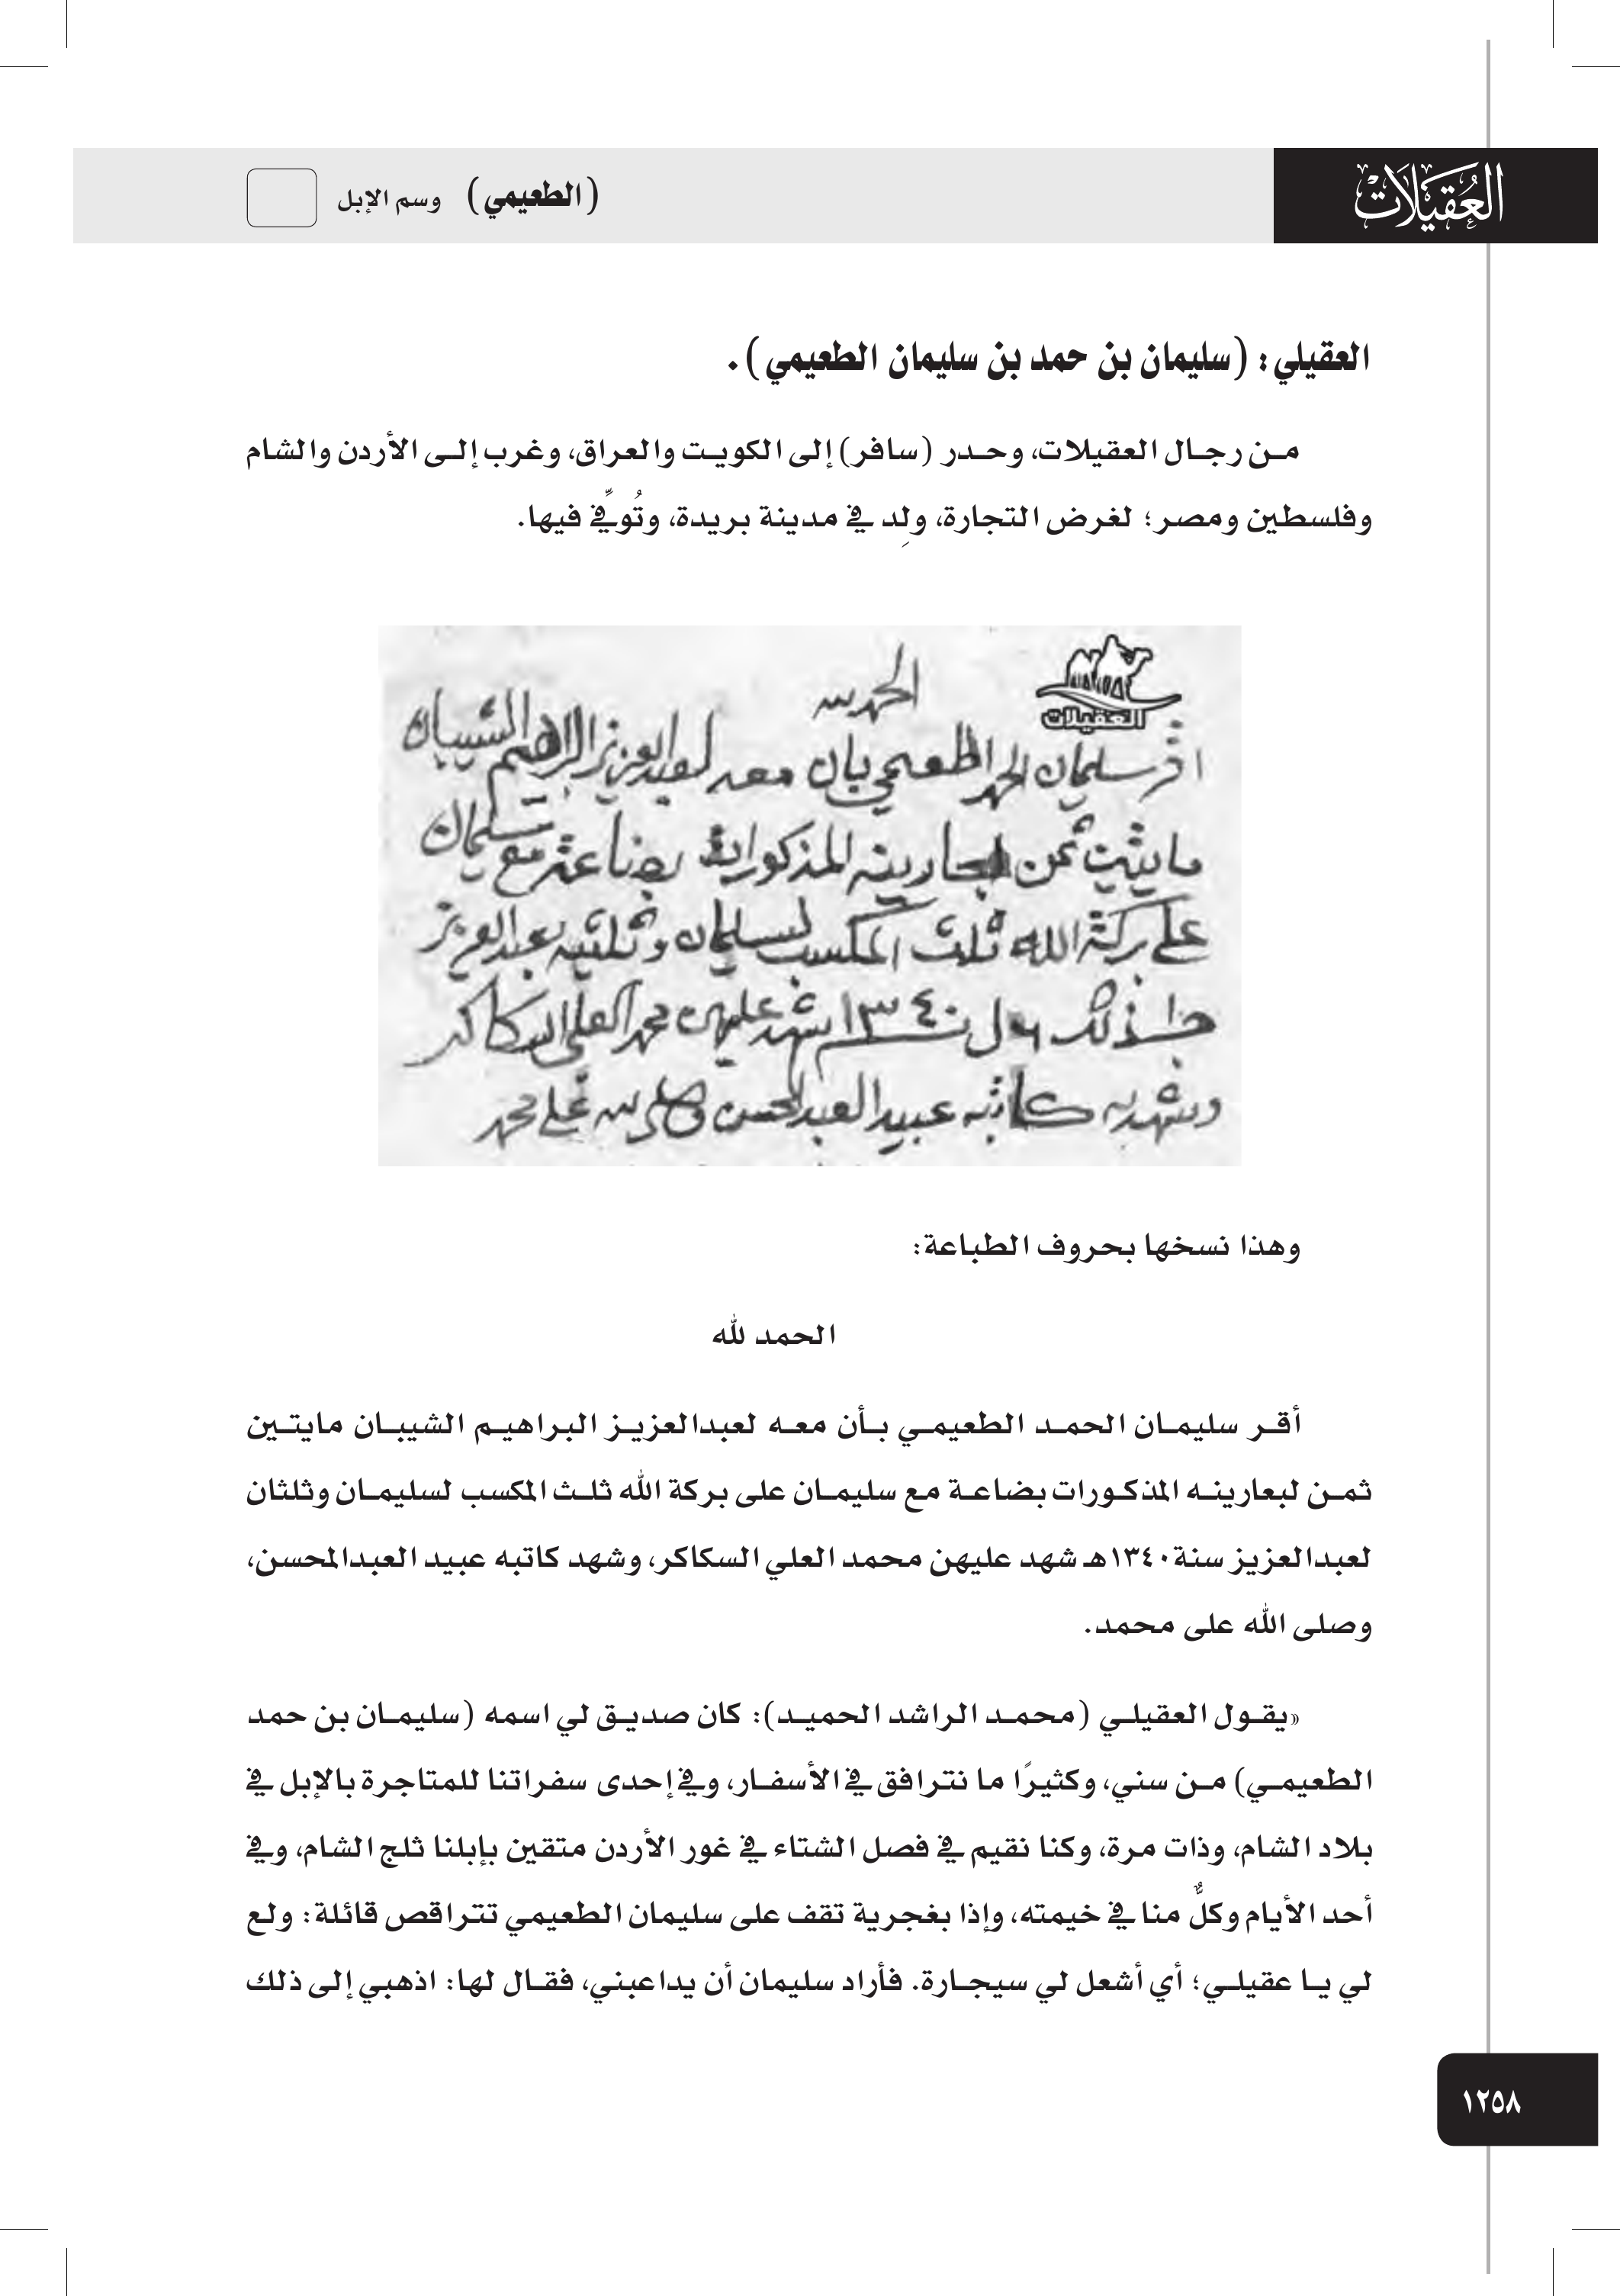 العُقَيْلَاتْ
(الطعيمي) وسم الإبل
العقيلي: (سليمان بن حمد بن سليمان الطعيمي).
من رجال العقيلات، وحدر (سافر) إلى الكويت والعراق، وغرب إلى الأردن والشام
وفلسطين ومصر؛ لغرض التجارة، ولِد في مدينة بريدة، وتُوفِّي فيها.
العقيلات
الحمد لله
اقر سليمان الحمد الطعيمي بان معه لعبد العزيز البراهيم الشيبان
مايتين ثمن بعارينه المذكورات بضاعة مع سليمان
على بركة الله ثلث المكسب لسليمان وثلثيه لعبد العزيز
ذلك ١٣٤٠ شهد عليهن محمد العلي السكاكر
وشهد به كاتبه عبيد العبدالمحسن وصلى الله على محمد
وهذا نسخها بحروف الطباعة:
الحمد لله
أقر سليمان الحمد الطعيمي بأن معه لعبدالعزيز البراهيم الشيبان مايتين
ثمن لبعارينه المذكورات بضاعة مع سليمان على بركة الله ثلث المكسب لسليمان وثلثان
لعبدالعزيز سنة ١٣٤٠هـ شهد عليهن محمد العلي السكاكر، وشهد كاتبه عبيد العبدالمحسن،
وصلى الله على محمد.
«يقول العقيلي (محمد الراشد الحميد): كان صديق لي اسمه (سليمان بن حمد
الطعيمي) من سني، وكثيرًا ما نترافق في الأسفار، وفي إحدى سفراتنا للمتاجرة بالإبل في
بلاد الشام، وذات مرة، وكنا نقيم في فصل الشتاء في غور الأردن متقين بإبلنا ثلج الشام، وفي
أحد الأيام وكلٌّ منا في خيمته، وإذا بغجرية تقف على سليمان الطعيمي تتراقص قائلة: ولع
لي يا عقيلي؛ أي أشعل لي سيجارة. فأراد سليمان أن يداعبني، فقال لها: اذهبي إلى ذلك
١٢٥٨